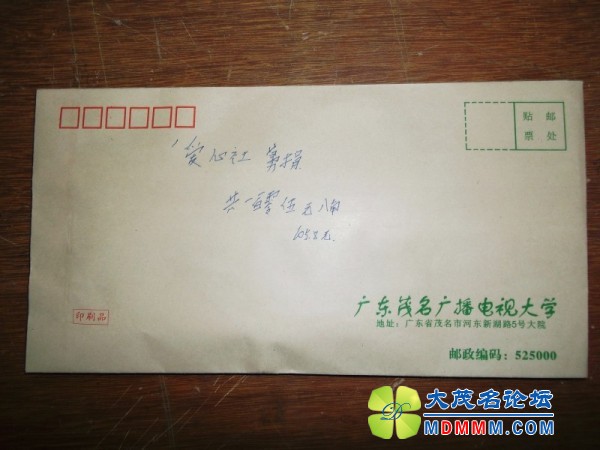 贴邮
票处
爱心社
共一百零伍元八角
105.8元.
印刷品
广东茂名广播电视大学
地址：广东省茂名市河东新湖路5号大院
邮政编码：525000
大茂名论坛
MDMMM.COM